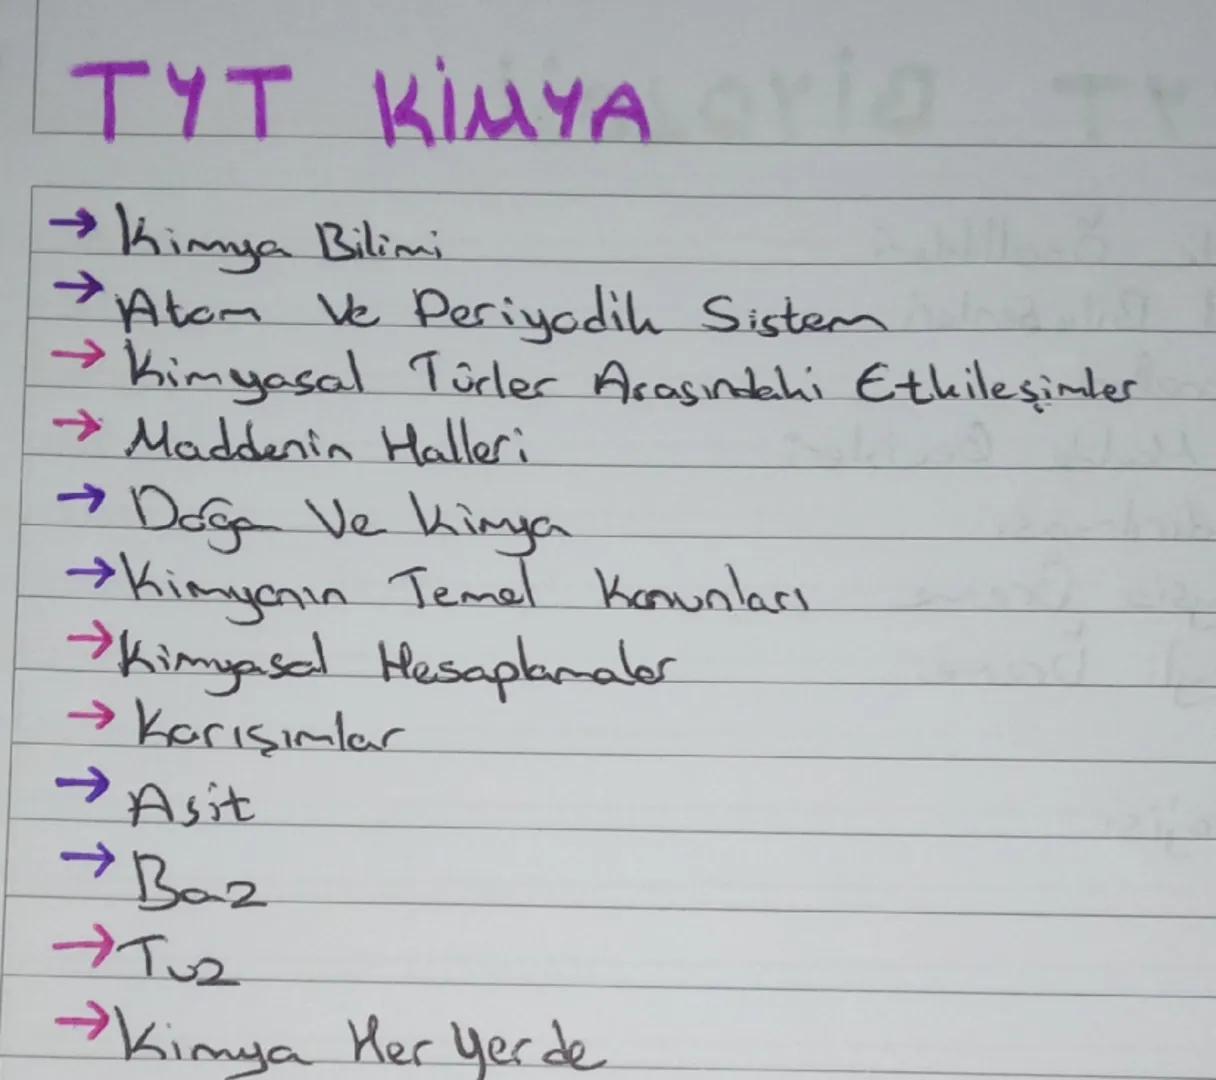 TYT KİMYA
→ Kimya Bilimi
→ Atom Ve Periyodik Sistem
→ Kimyasal Türler Arasındaki Etkileşimler
→ Maddenin Halleri
→ Doğa Ve Kimya
→ Kimyanın Temel Kanunları
→ Kimyasal Hesaplamalar
→ Karışımlar
→ Asit
→ Baz
→ Tuz
→ Kimya Her Yerde